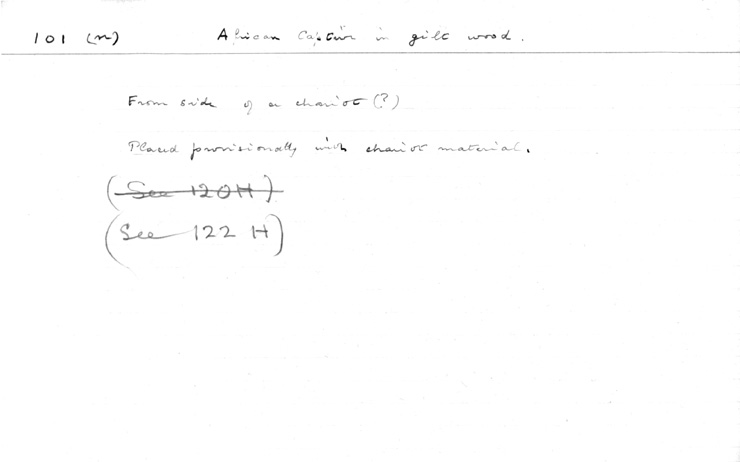 101 (n) African Captive in gilt wood.
From side of a chariot (?)
Placed provisionally with chariot material.
(See 120H)
(See 122 H)